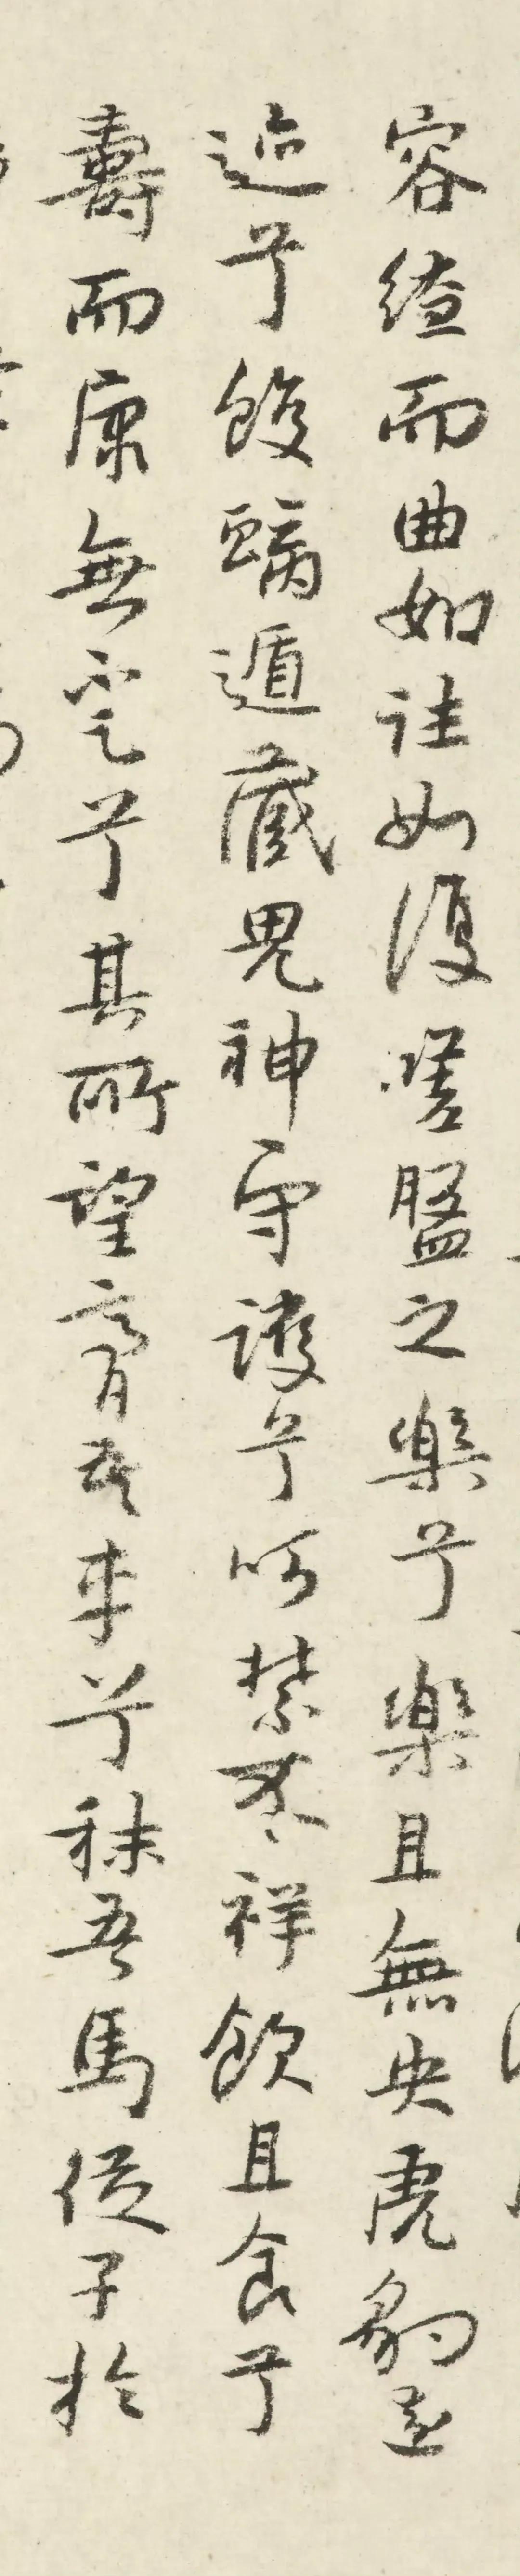 容繚而曲如往如復嗟盤之樂兮樂且無央虎豹遠
迹兮蛟螭遁藏鬼神守護兮呵禁不祥飲且食兮
壽而康無不足兮其所望膏吾車兮秣吾馬從子於